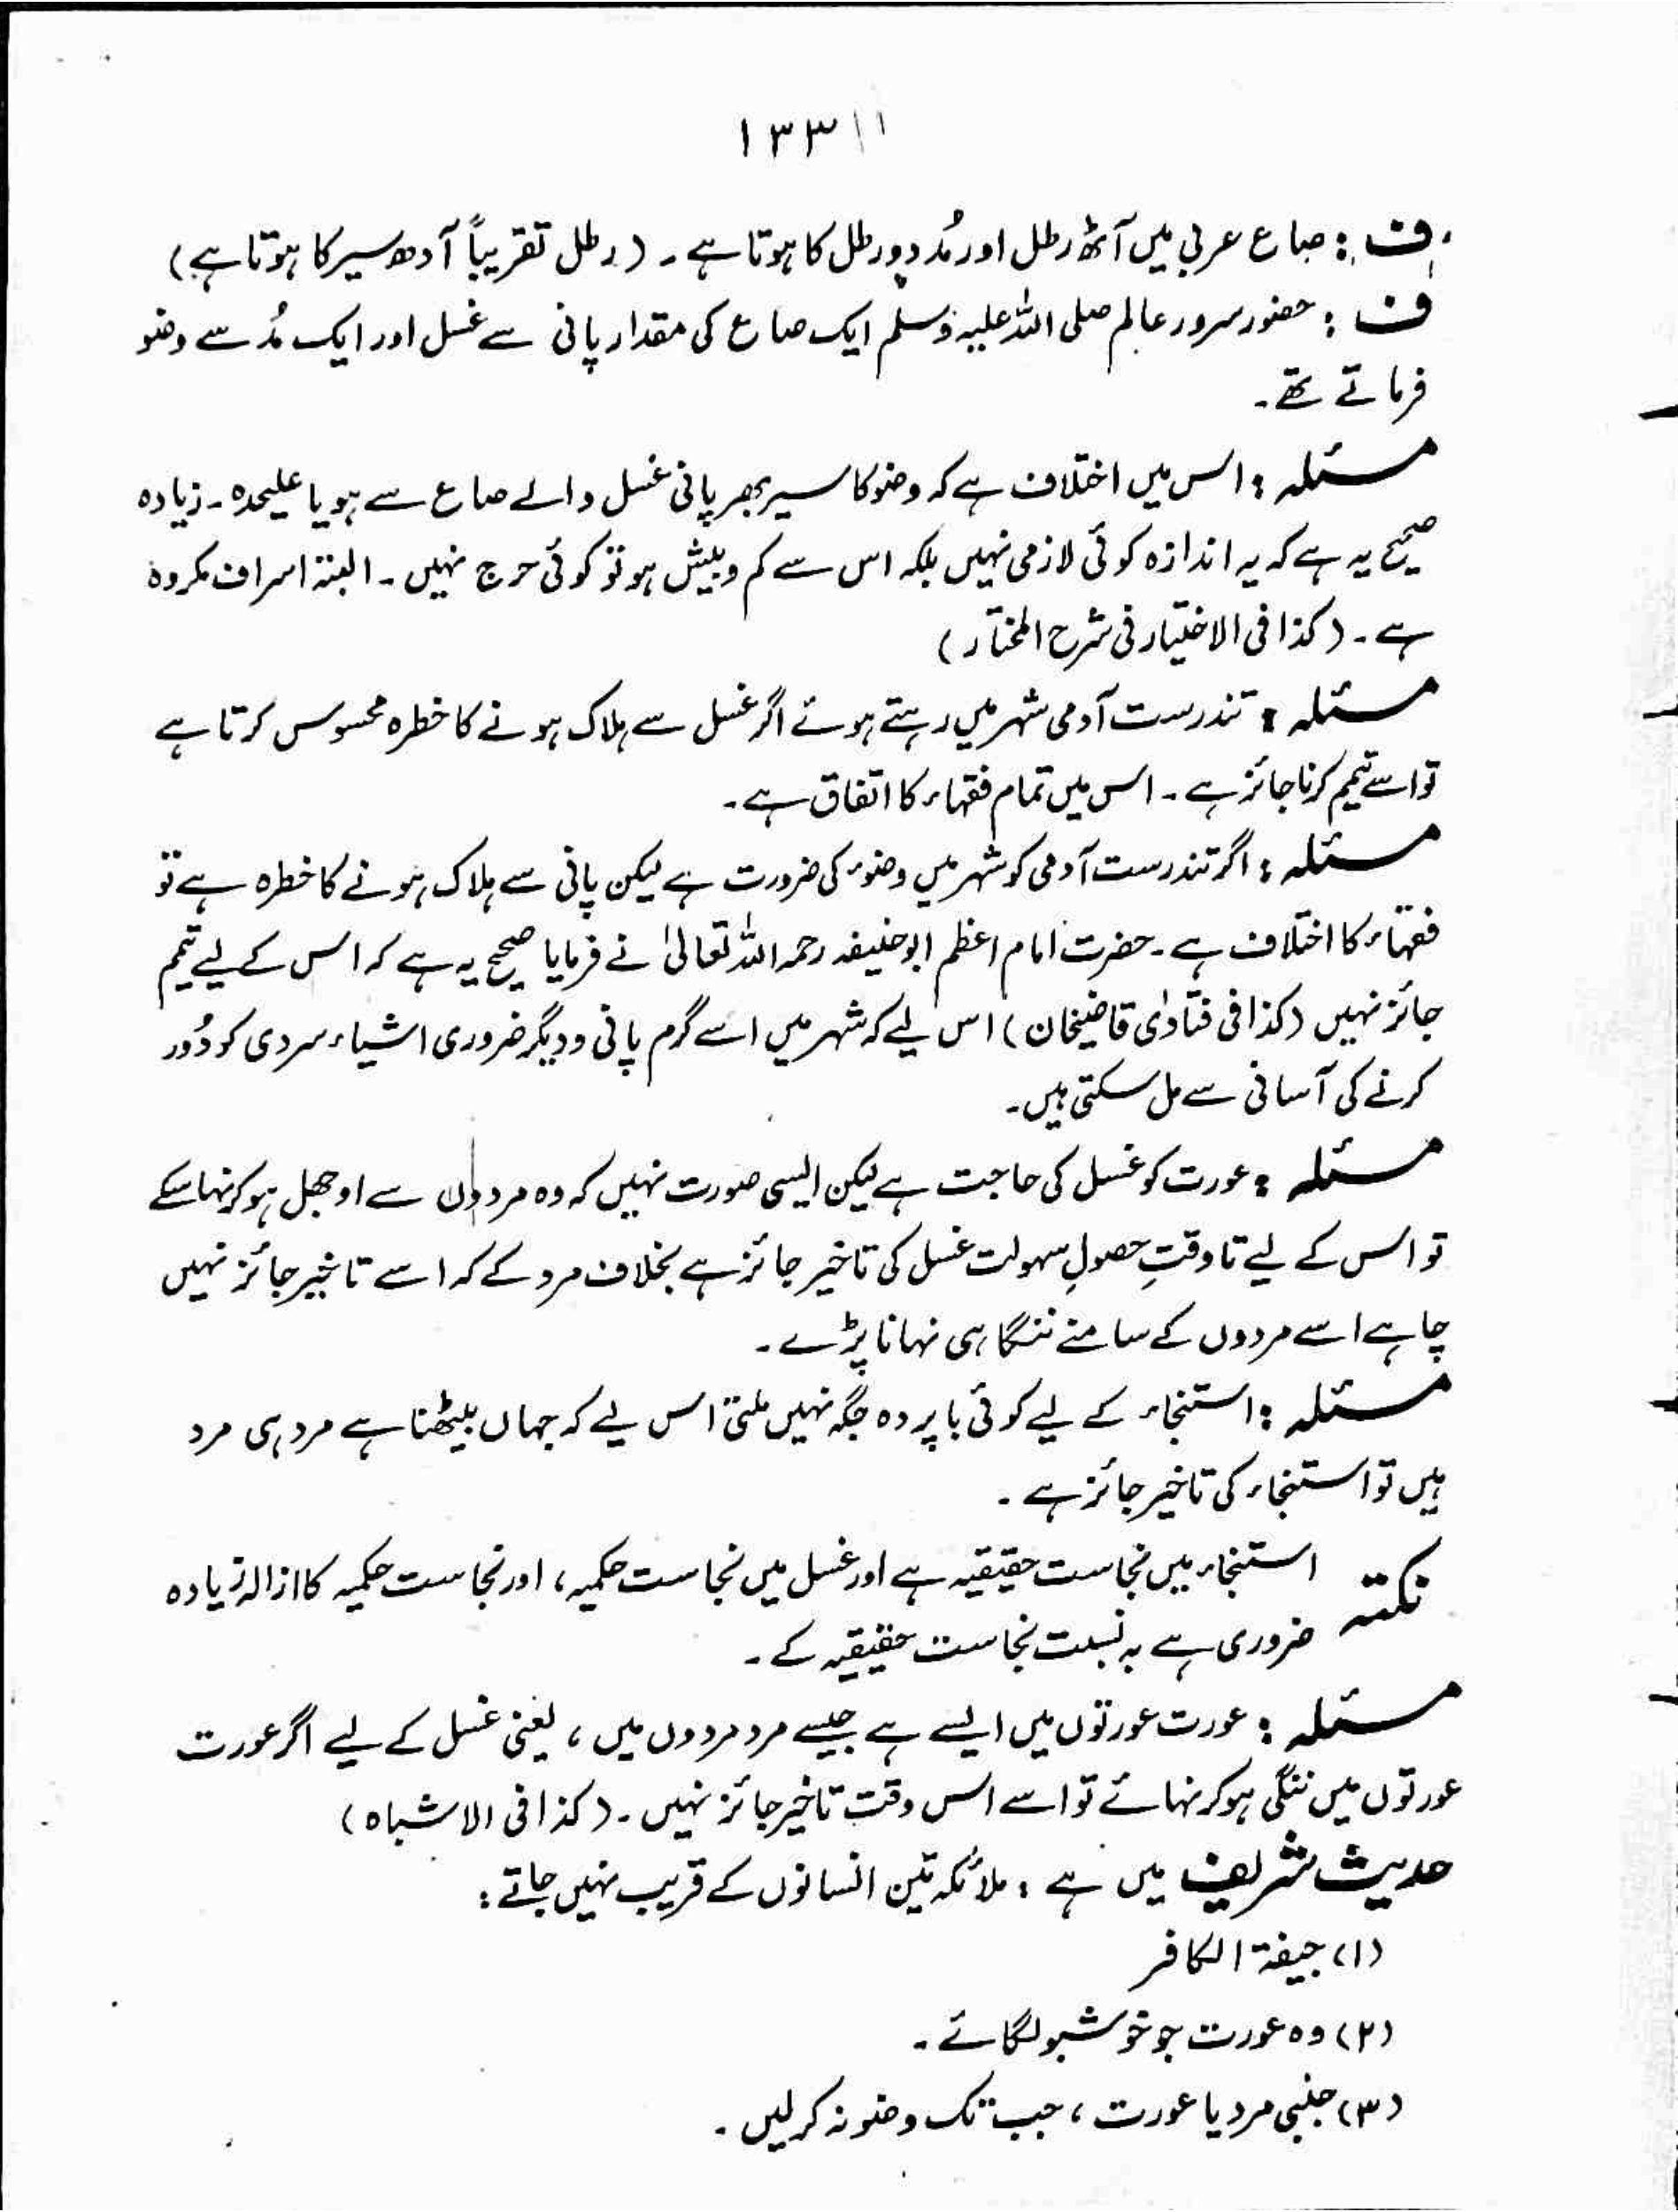 ۱۳۳
ف : صاع عربی میں آٹھ رطل اور مُد دو رطل کا ہوتا ہے ۔ (رطل تقریباً آدھ سیر کا ہوتا ہے)
ف : حضور سرور عالم صلی اللہ علیہ وسلم ایک صاع کی مقدار پانی سے غسل اور ایک مُد سے وضو
فرماتے تھے ۔
مسئلہ : اس میں اختلاف ہے کہ وضو کا سیر بھر پانی غسل والے صاع سے ہو یا علیحدہ ۔ زیادہ
صحیح یہ ہے کہ یہ اندازہ کوئی لازمی نہیں بلکہ اس سے کم و بیش ہو تو کوئی حرج نہیں ۔ البتہ اسراف مکروہ
ہے ۔ (کذا فی الاختیار فی شرح المختار)
مسئلہ : تندرست آدمی شہر میں رہتے ہوئے اگر غسل سے ہلاک ہونے کا خطرہ محسوس کرتا ہے
تو اسے تیمم کرنا جائز ہے ۔ اس میں تمام فقہاء کا اتفاق ہے ۔
مسئلہ : اگر تندرست آدمی کو شہر میں وضوء کی ضرورت ہے لیکن پانی سے ہلاک ہونے کا خطرہ ہے تو
فقہاء کا اختلاف ہے ۔ حضرت امام اعظم ابوحنیفہ رحمہ اللہ تعالیٰ نے فرمایا صحیح یہ ہے کہ اس کے لیے تیمم
جائز نہیں (کذا فی فتاوٰی قاضیخان) اس لیے کہ شہر میں اسے گرم پانی و دیگر ضروری اشیاء سردی کو دُور
کرنے کی آسانی سے مل سکتی ہیں ۔
مسئلہ : عورت کو غسل کی حاجت ہے لیکن ایسی صورت نہیں کہ وہ مردوں سے اوجھل ہو کر نہا سکے
تو اس کے لیے تا وقتِ حصولِ سہولت غسل کی تاخیر جائز ہے بخلاف مرد کے کہ اسے تاخیر جائز نہیں
چاہے اسے مردوں کے سامنے ننگا ہی نہانا پڑے ۔
مسئلہ : استنجاء کے لیے کوئی باپردہ جگہ نہیں ملتی اس لیے کہ جہاں بیٹھنا ہے مرد ہی مرد
ہیں تو استنجاء کی تاخیر جائز ہے ۔
نکتہ استنجاء میں نجاست حقیقیہ ہے اور غسل میں نجاست حکمیہ ، اور نجاست حکمیہ کا ازالہ زیادہ
ضروری ہے بہ نسبت نجاست حقیقیہ کے ۔
مسئلہ : عورت عورتوں میں ایسے ہے جیسے مرد مردوں میں ، یعنی غسل کے لیے اگر عورت
عورتوں میں ننگی ہو کر نہائے تو اسے اس وقت تاخیر جائز نہیں ۔ (کذا فی الاشباہ)
حدیث شریف میں ہے : ملائکہ تین انسانوں کے قریب نہیں جاتے :
(۱) جیفۃ الکافر
(۲) وہ عورت جو خوشبو لگائے ۔
(۳) جنبی مرد یا عورت ، جب تک وضو نہ کر لیں ۔